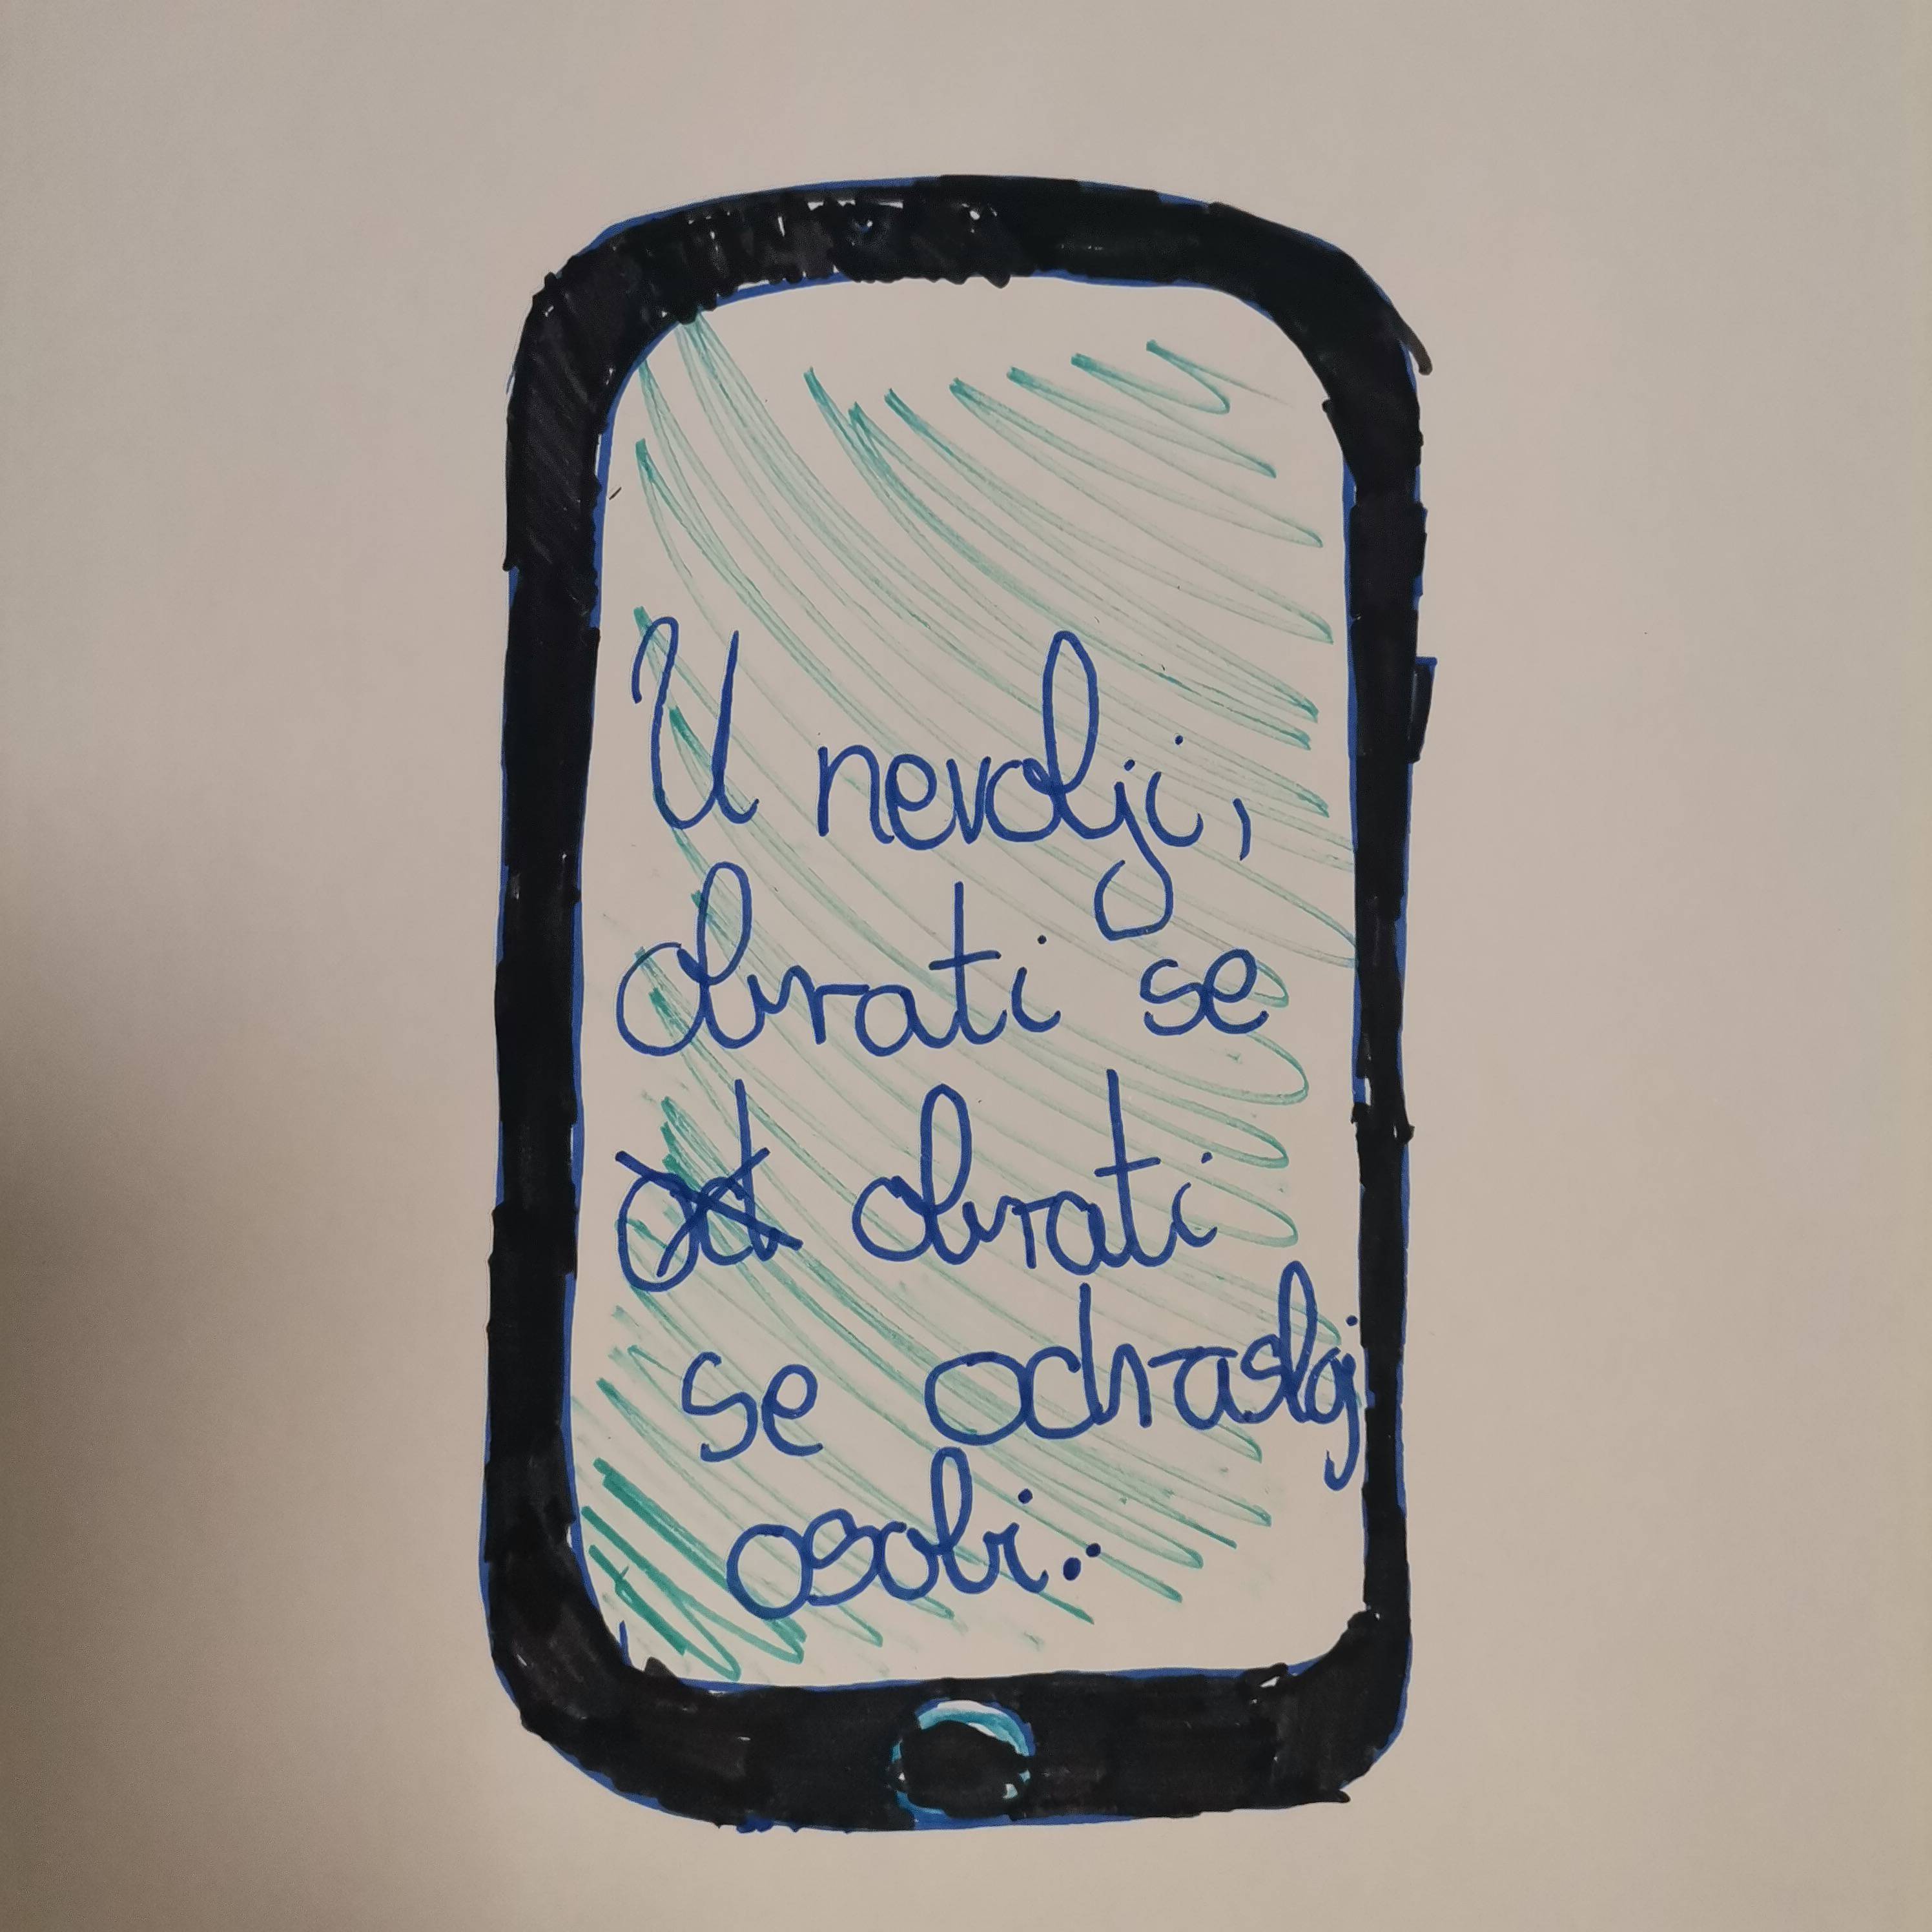 U nevolji,
obrati se
od obrati
se odrasloj
osobi..